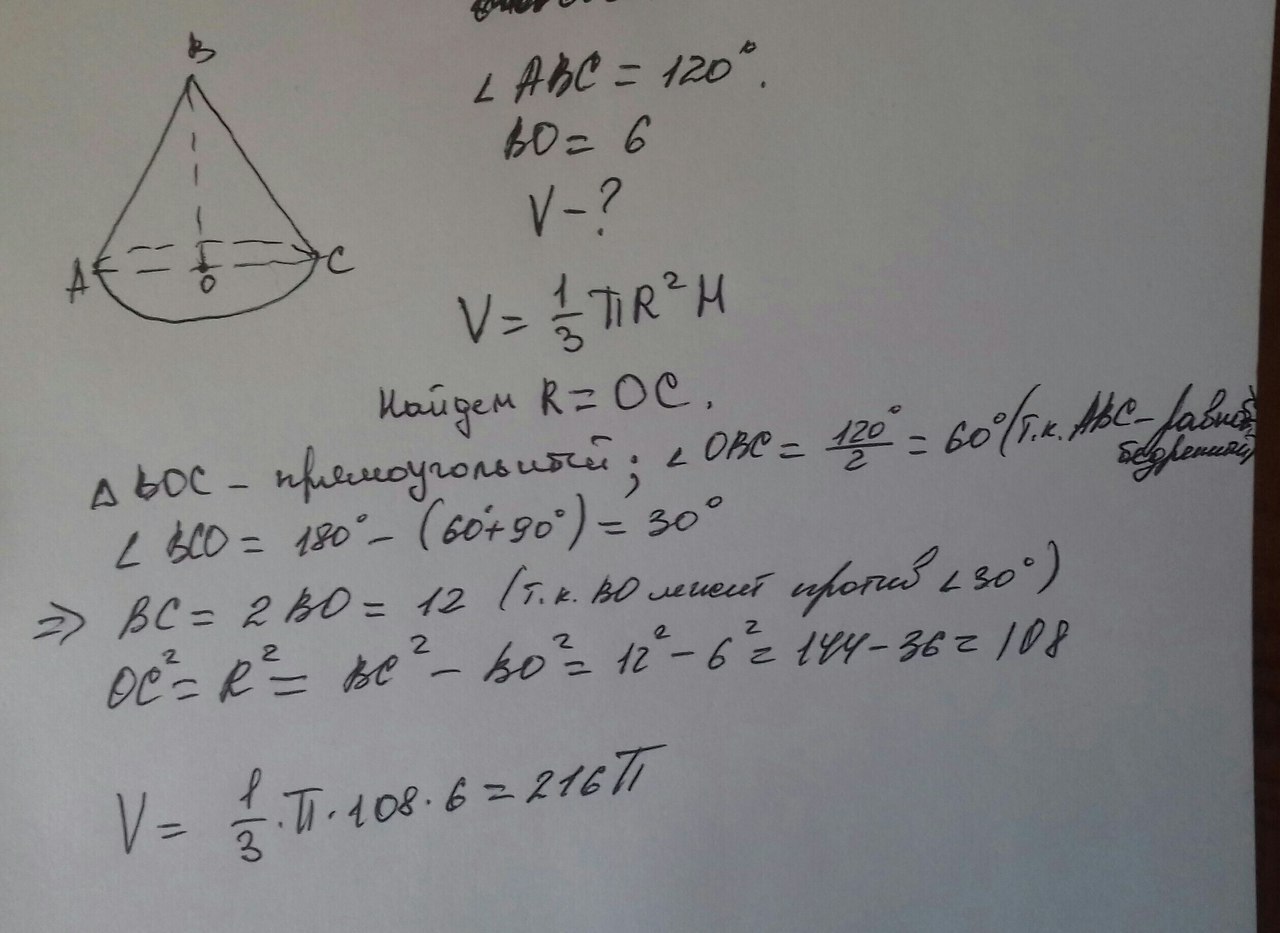 B
A
O
C
∠ ABC = 120°.
BO = 6
V - ?
V = 1/3 πR²H
Найдем R = OC.
△ BOC - прямоугольный; ∠ OBC = 120°/2 = 60° (т.к. ABC - равнобедренный)
∠ BCO = 180° - (60°+90°) = 30°
=> BC = 2BO = 12 (т.к. BO лежит против ∠30°)
OC² = R² = BC² - BO² = 12² - 6² = 144 - 36 = 108
V = 1/3 · π · 108 · 6 = 216π